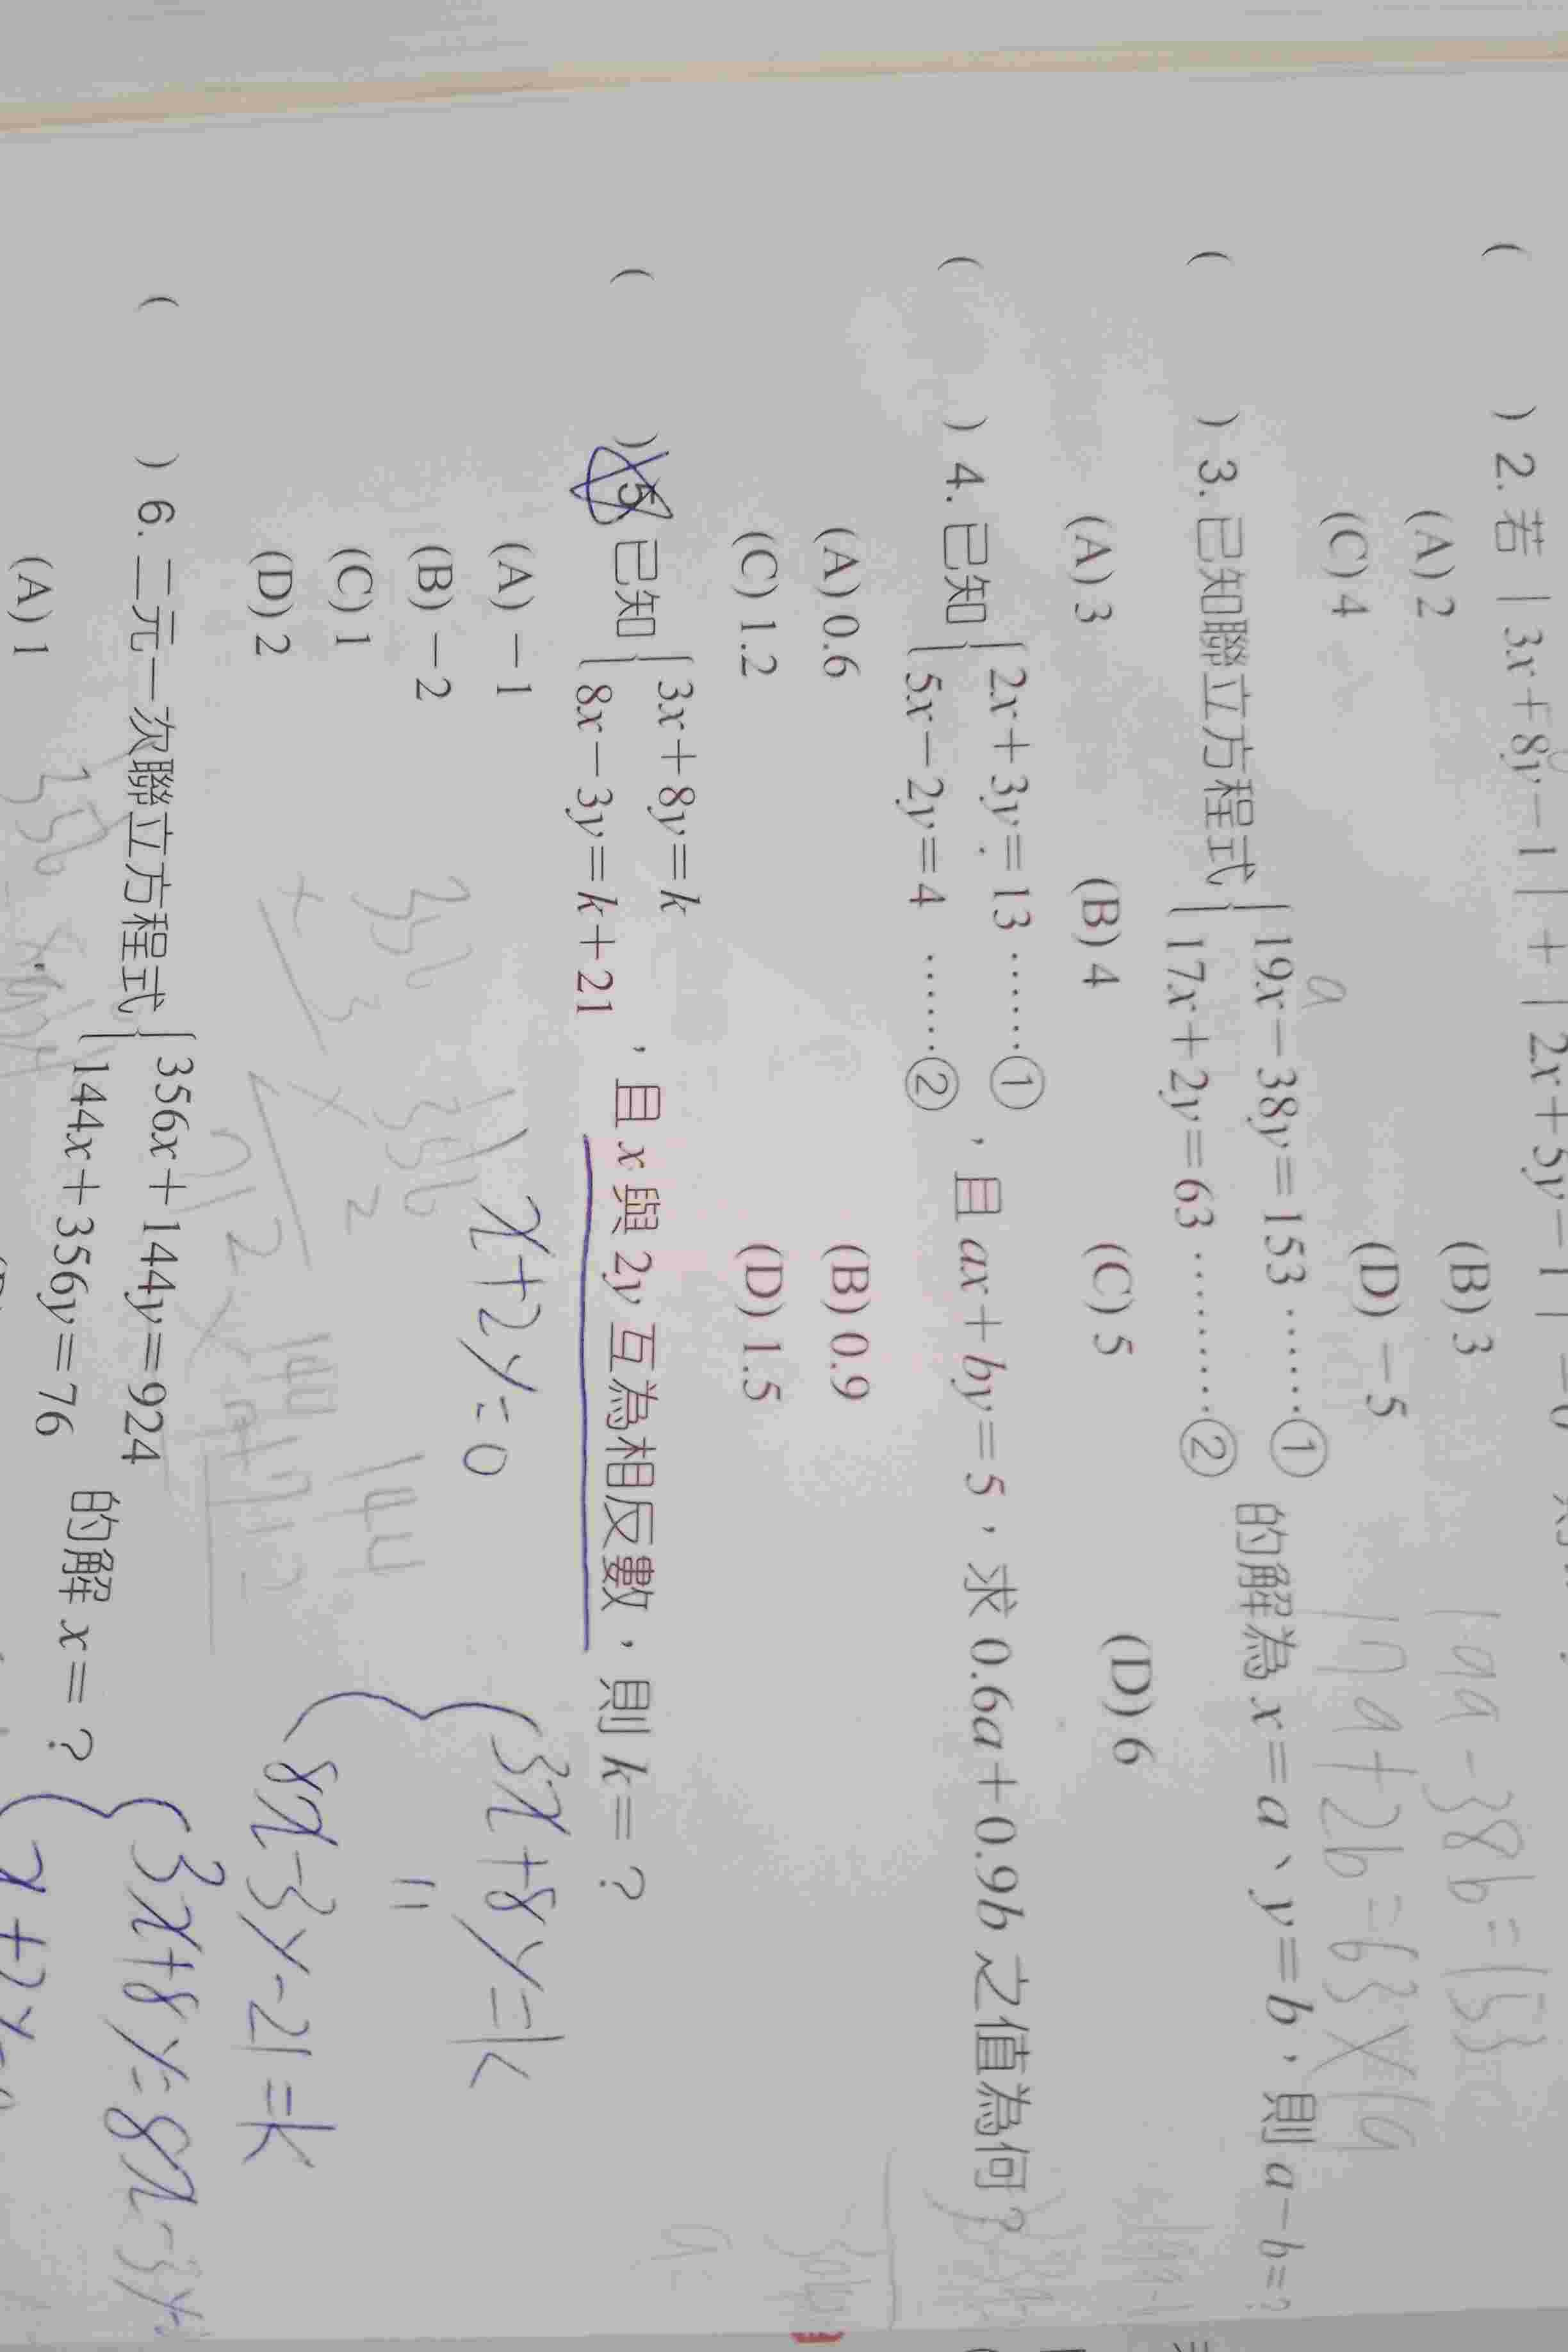 ( ) 2. 若 | 3x+8y−1 | + | 2x+5y−1 |
(A) 2 (B) 3
(C) 4 (D) −5
19a − 38b = 153
17a + 2b = 63 × 19
a
( ) 3. 已知聯立方程式 { 19x−38y=153 ……①
17x+2y=63 ………② 的解為 x=a、y=b,則 a−b=?
(A) 3 (B) 4 (C) 5 (D) 6
( ) 4. 已知 { 2x+3y=13 ……①
5x−2y=4 ……② ,且 ax+by=5,求 0.6a+0.9b 之值為何?
(A) 0.6 (B) 0.9
(C) 1.2 (D) 1.5
( ) 5. 已知 { 3x+8y=k
8x−3y=k+21 ,且 x 與 2y 互為相反數,則 k=?
(A) −1
(B) −2
(C) 1
(D) 2
x+2y=0
{ 3x+8y=k
=
8x−3y−21=k
356
× 3
356
× 2
712
144
( ) 6. 二元一次聯立方程式 { 356x+144y=924
144x+356y=76 的解 x=?
(A) 1
{ 3x+8y=8x−3y